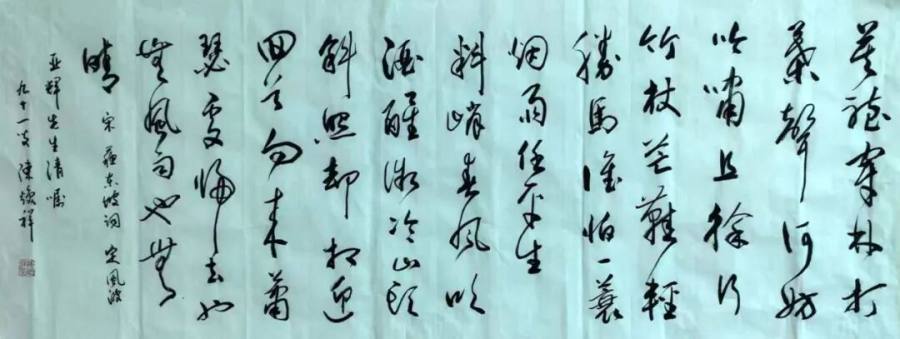 莫聽穿林打
葉聲何妨
吟嘯且徐行
竹杖芒鞋輕
勝馬誰怕一蓑
烟雨任平生
料峭春風吹
酒醒微冷山頭
斜照却相迎
回首向來蕭
瑟處歸去也
無風雨也無
晴 宋蘇東坡詞 定風波
亚輝先生清嘱
九十一叟 陳 祥